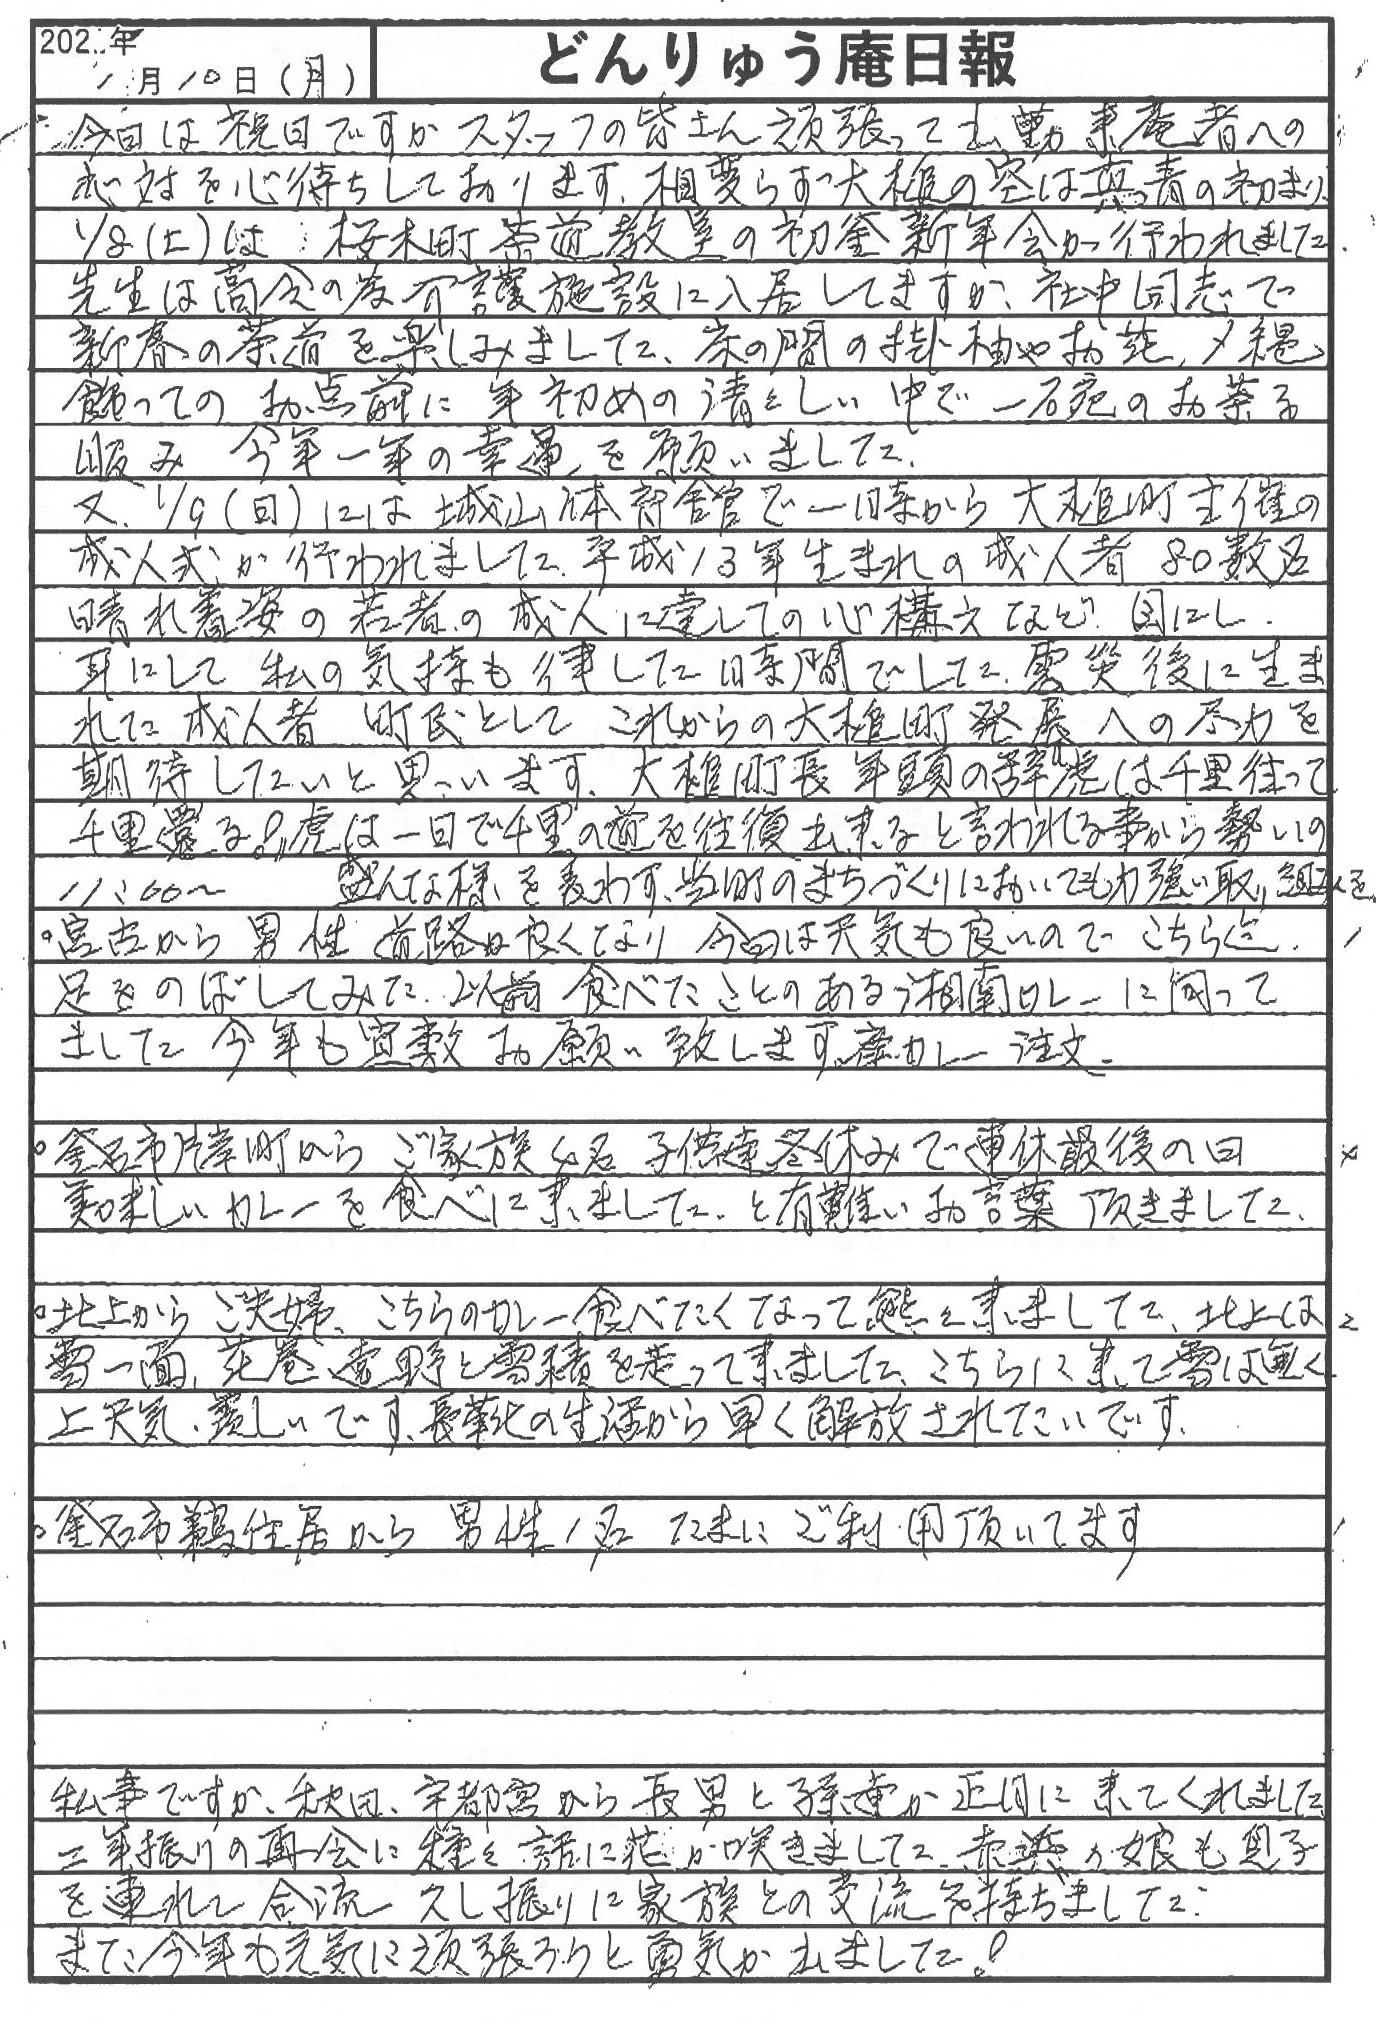 202 年
1月10日(月)
どんりゅう庵日報
今日は祝日ですが スタッフの皆さん頑張って出勤 来庵者への
応対を心待ちしております、相変らず大槌の空は真青の初まり、
1/8(土)は 桜木町茶道教室の初釜新年会が行われました
先生は高令の為介護施設に入居してますが、社中同志で
新春の茶道を楽しみました、床の間の掛軸やお花、〆縄
飾ってのお点前に 年初めの清々しい中で一碗のお茶を
服み 今年一年の幸運を願いました、
又、1/9(日)には城山体育館で一時から大槌町主催の
成人式が行われました、平成13年生まれの成人者80数名
晴れ着姿の若者の成人に達しての心構えなど 目にし、
耳にして 私の気持も した時間でした、震災後に生ま
れた成人者 町民として これからの大槌町発展への尽力を
期待したいと思います、大槌町長年頭の辞"虎は千里往って
千里還る!"虎は一日で千里の道を往復出来ると言われる事から勢いの
11:00〜 盛んな様を表わす、当町のまちづくりにおいても力強い取り組みを
○宮古から 男性 道路が良くなり 今日は天気も良いので こちら迄、 1
足をのばしてみた、以前食べたことのある湘南カレーに向って
ました 今年も宜敷お願い致します、鹿カレー注文、
○釜石市片岸町から ご家族4名 子供達冬休みで連休最後の日 4
美味しいカレーを食べに来ました、と有難いお言葉頂きました、
○北上から ご夫婦、こちらのカレー食べたくなって態々来ました、北上は 2
雪一面、花巻、遠野と雪積を走って来ました、こちらに来て雪は無く
上天気、羨しいです、長靴の生活から早く解放されたいです、
○釜石市鵜住居から 男性1名 たまにご利用頂いてます 1
私事ですが、秋田、宇都宮から長男と孫達が正月に来てくれました
二年振りの再会に種々話に花が咲きました、赤浜の娘も息子
を連れて合流 久し振りに家族との交流を持ちました、
また今年も元気に頑張ろうと勇気が出ました!